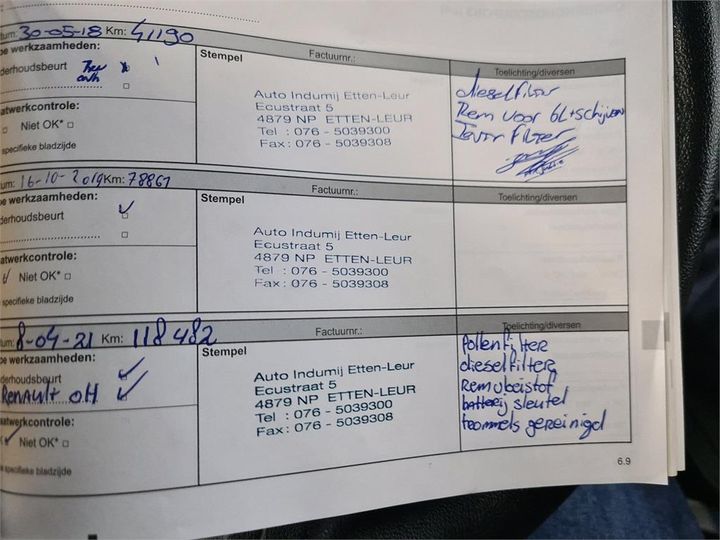 tum: 30-05-18 Km: 41190
pe werkzaamheden:
derhoudsbeurt
Stempel
Factuurnr.:
Auto Indumij Etten-Leur
Ecustraat 5
4879 NP ETTEN-LEUR
Tel : 076 - 5039300
Fax : 076 - 5039308
Toelichting/diversen
dieselfilter
Rem voor BL+schijven
Filter
atwerkcontrole:
Niet OK*
specifieke bladzijde
um: 16-10-2019 Km: 78861
pe werkzaamheden:
derhoudsbeurt
Stempel
Factuurnr.:
Auto Indumij Etten-Leur
Ecustraat 5
4879 NP ETTEN-LEUR
Tel : 076 - 5039300
Fax : 076 - 5039308
Toelichting/diversen
atwerkcontrole:
Niet OK*
specifieke bladzijde
um: 8-04-21 Km: 118482
pe werkzaamheden:
derhoudsbeurt
RENAULT OH
Stempel
Factuurnr.:
Auto Indumij Etten-Leur
Ecustraat 5
4879 NP ETTEN-LEUR
Tel : 076 - 5039300
Fax : 076 - 5039308
Toelichting/diversen
Pollenfilter
dieselfilter
Remvloeistof
batterij sleutel
trommels gereinigd
atwerkcontrole:
Niet OK*
specifieke bladzijde
6.9